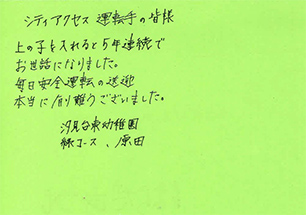 シティアクセス 運転手の皆様
上の子を入れると5年連続で
お世話になりました。
毎日安全運転の送迎
本当に有難うございました。
汐見台東幼稚園
緑コース、原田